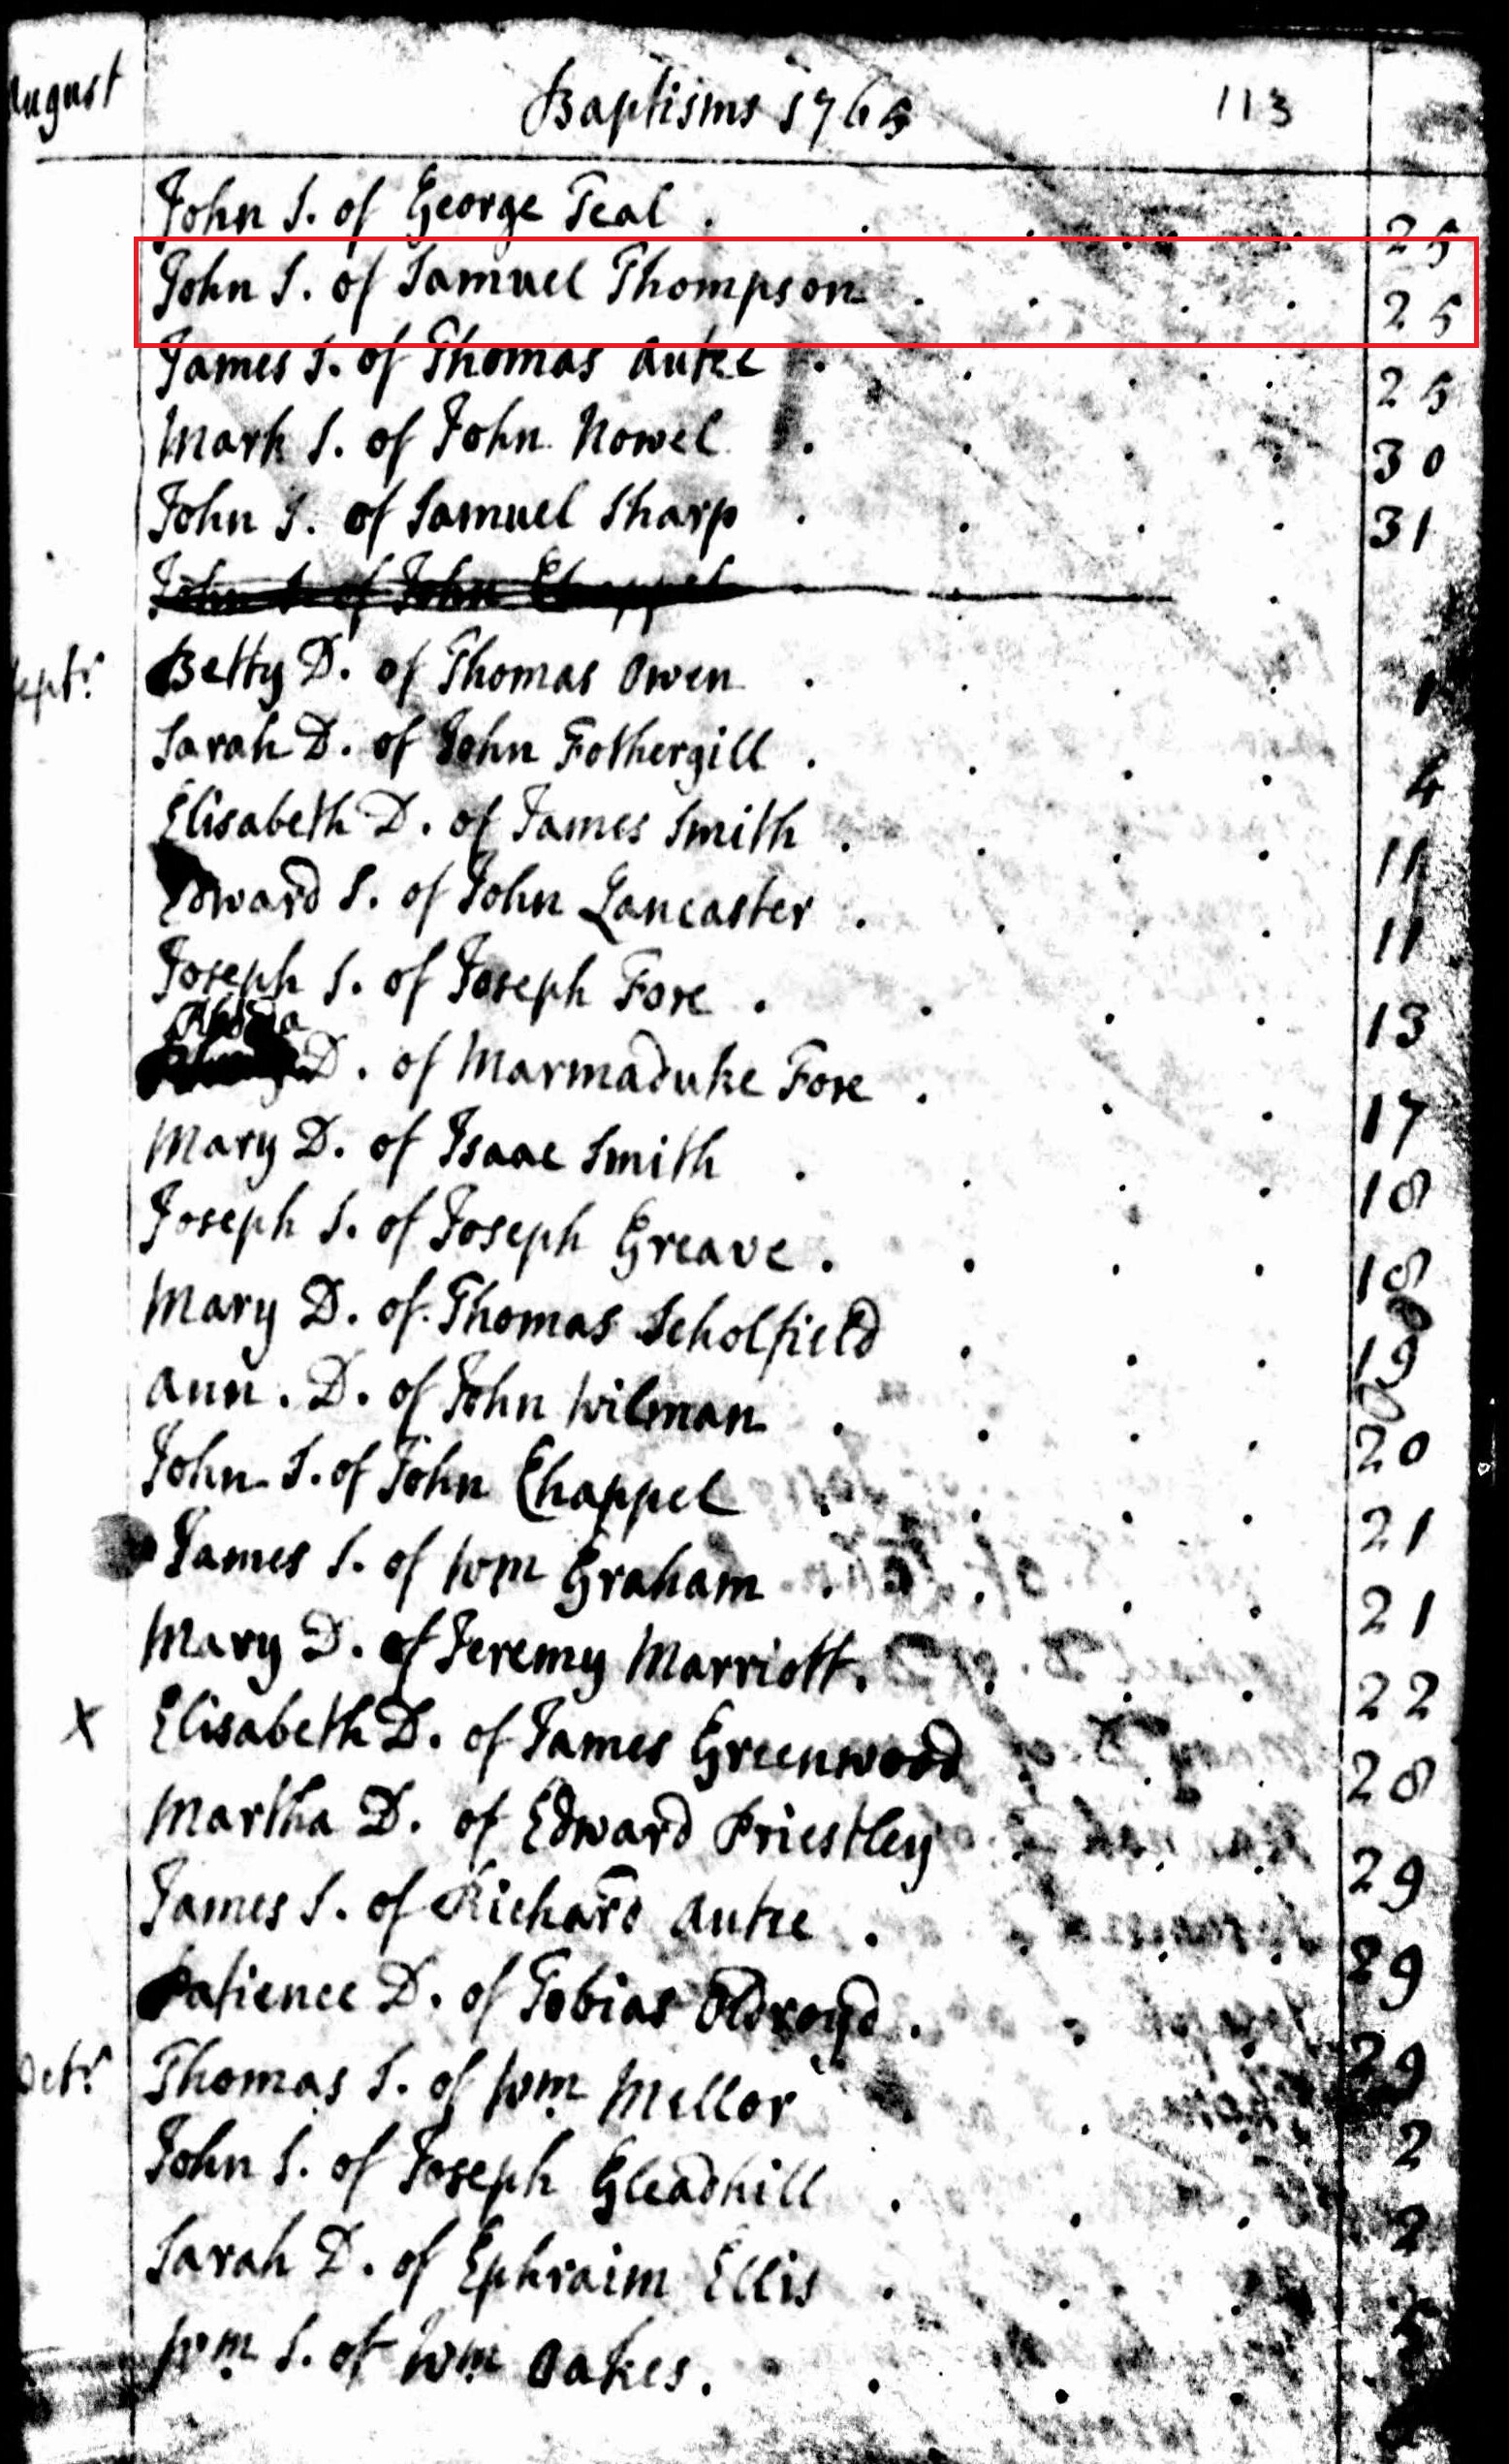 August Baptisms 1765 113
John S. of George Teal . 25
John S. of Samuel Thompson . 25
James S. of Thomas Autie . 25
Mark S. of John Nowel . 30
John S. of Samuel Sharp . 31
John S. of John Chappel
Septr. Betty D. of Thomas Owen . 1
Sarah D. of John Fothergill . 4
Elisabeth D. of James Smith . 11
Edward S. of John Lancaster . 11
Joseph S. of Joseph Fore . 13
D. of Marmaduke Fore . 17
Mary D. of Isaac Smith . 18
Joseph S. of Joseph Greave . 18
Mary D. of Thomas Scholfield . 19
Ann . D. of John Wilman . 20
John S. of John Chappel . 21
James S. of Wm Graham . 21
Mary D. of Jeremy Marriott . 22
X Elisabeth D. of James Greenwood . 28
Martha D. of Edward Priestley . 29
James S. of Richard Autie . 29
Patience D. of Tobias Oldroyd . 29
Octr. Thomas S. of Wm Mellor . 2
John S. of Joseph Gleadhill . 2
Sarah D. of Ephraim Ellis .
Wm S. of Wm Oakes .